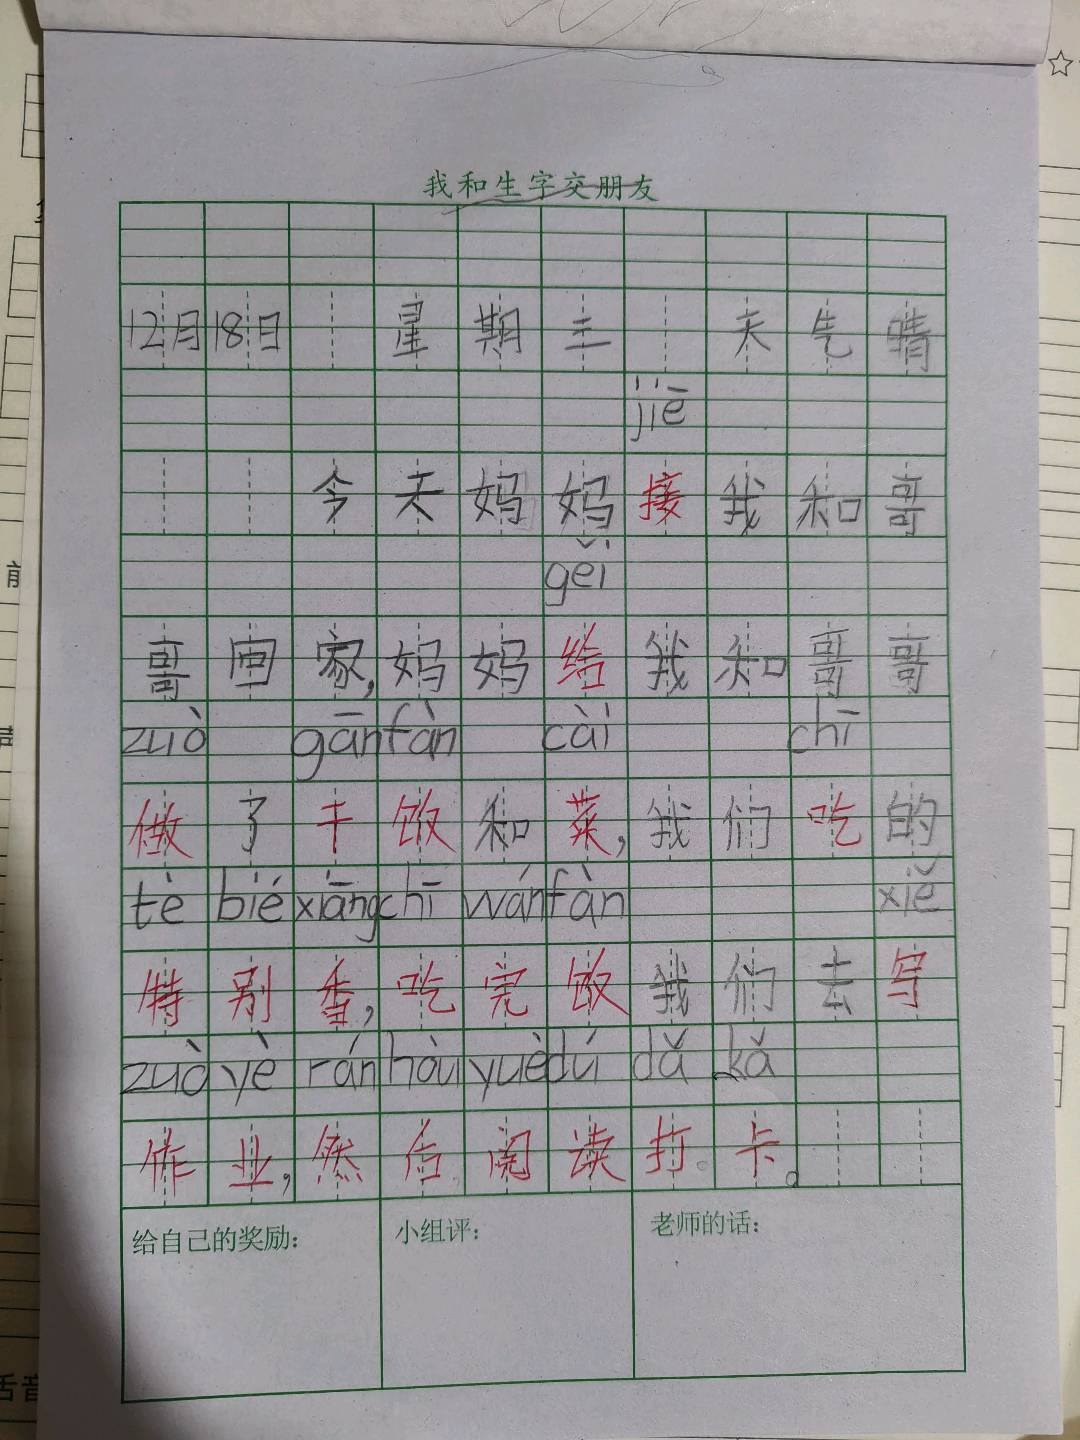 我和生字交朋友
12月18日 星期三 天气晴
jiē
今天妈妈接我和哥
gěi
哥回家,妈妈给我和哥哥
zuò gān fàn cài chī
做了干饭和菜,我们吃的
tè bié xiāng chī wán fàn xiě
特别香,吃完饭我们去写
zuò yè rán hòu yuè dú dǎ kǎ
作业,然后阅读打卡。
给自己的奖励: 小组评: 老师的话: